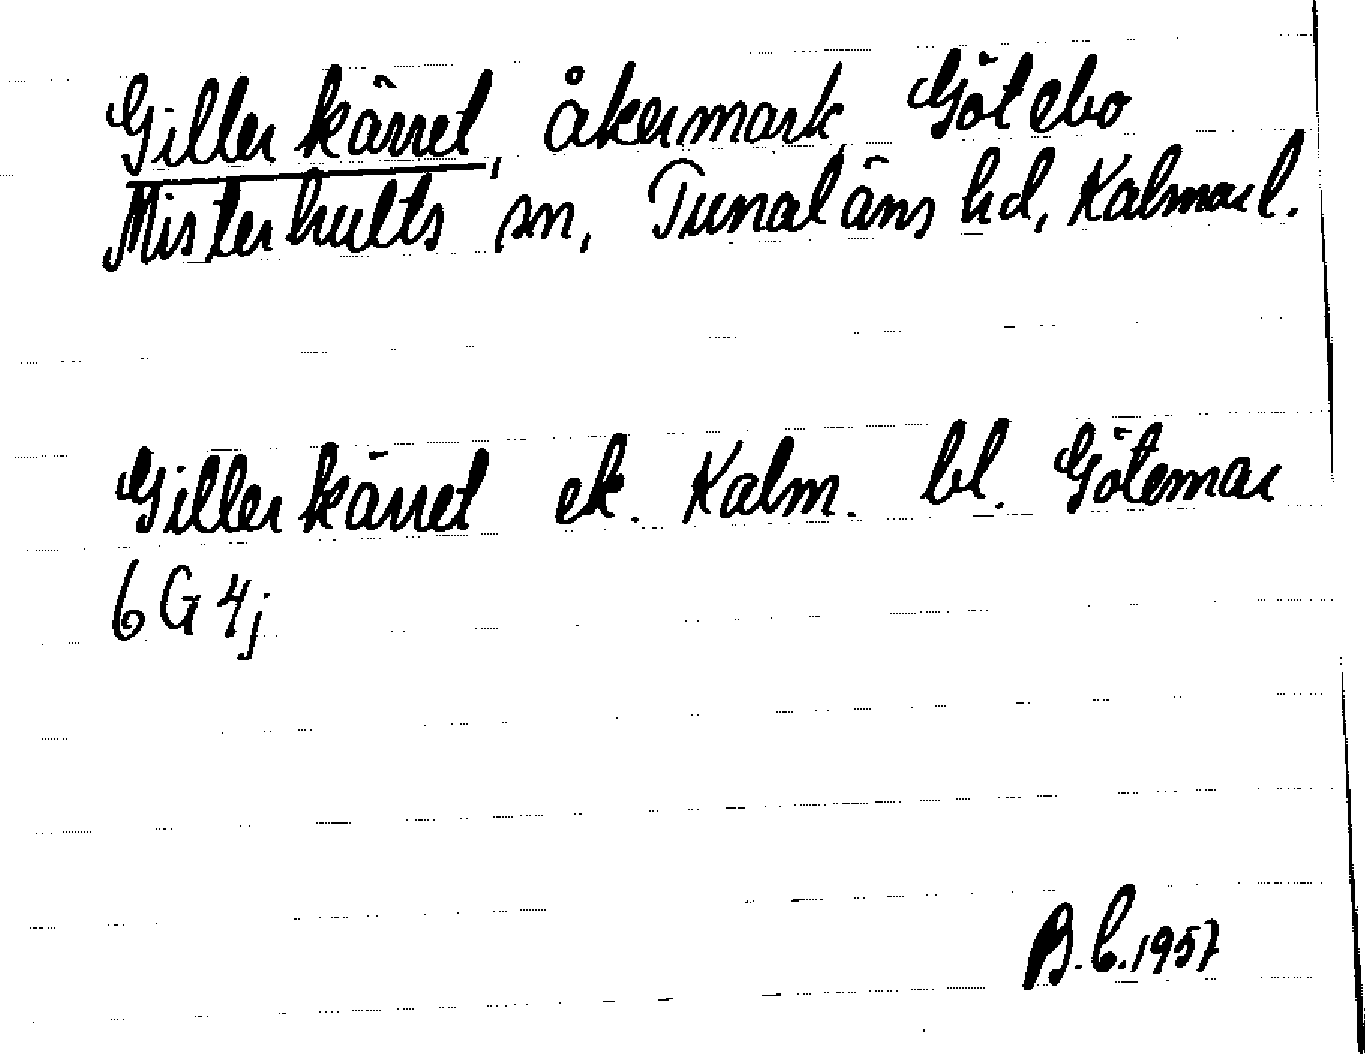 Gillerkärret, åkermark, Götebo
Misterhults sn, Tunaläns hd, Kalmar l.
Gillerkärret ek. Kalm. bl. Götemar
6G4j
B.L. 1957